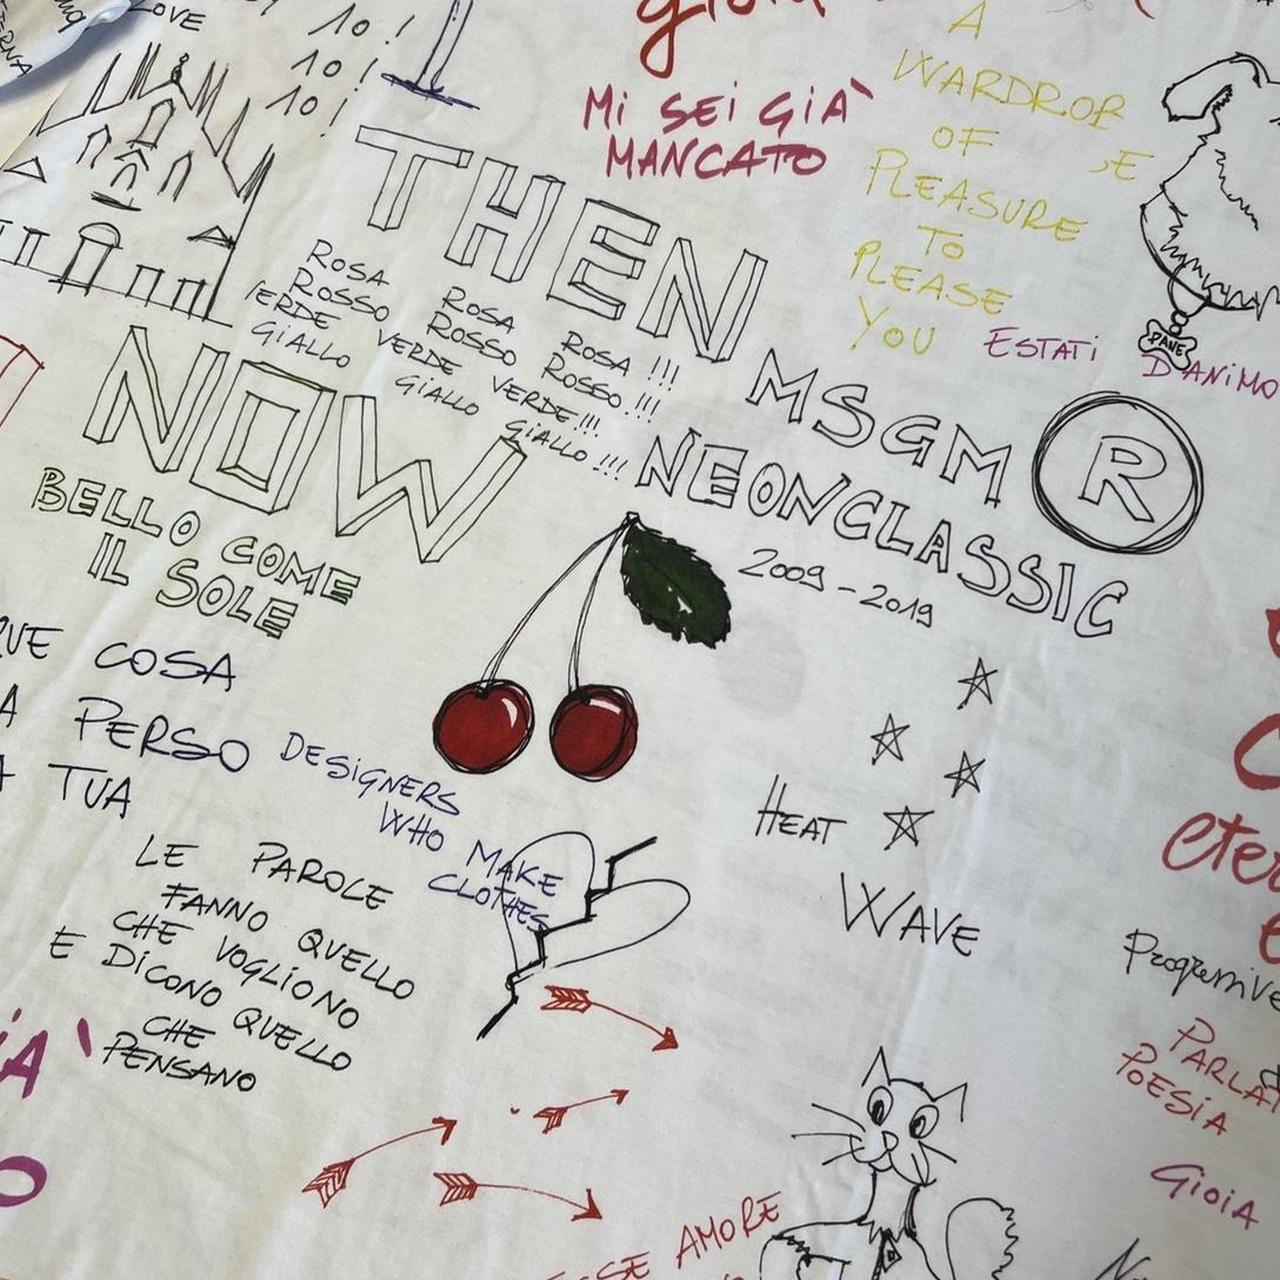 LOVE
10!
10!
10!
MI SEI GIÀ
MANCATO
A
WARDROP
OF
,E
PLEASURE
TO
PLEASE
YOU
ESTATI
D'ANIMO
PANE
THEN
ROSA ROSA ROSA !!!
ROSSO ROSSO ROSSO !!!
VERDE VERDE!!!
GIALLO GIALLO GIALLO !!!
NOW
MSGM ®
NEONCLASSIC
2009-2019
BELLO COME
IL SOLE
COSA
PERSO
TUA
DESIGNERS
WHO MAKE
CLOTHES
LE PAROLE
FANNO QUELLO
CHE VOGLIONO
E DICONO QUELLO
CHE
PENSANO
HEAT
WAVE
Progressive
POESIA
GIOIA
AMORE